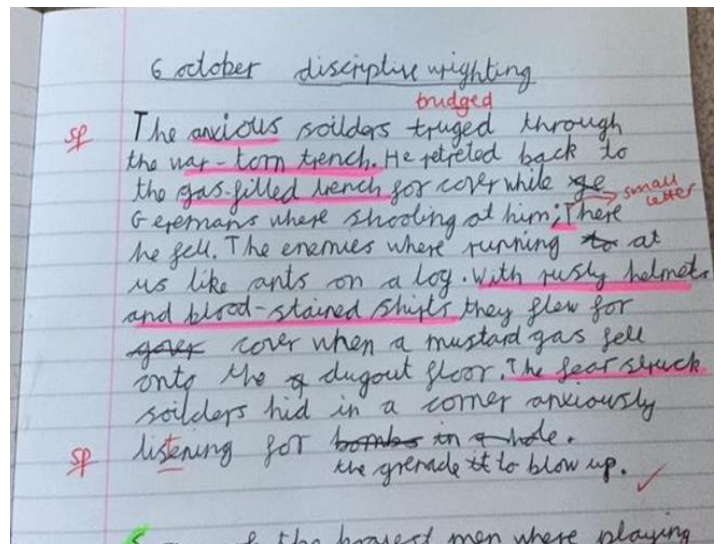 6 october discriptive wrighting
trudged
sp The anxious soilders truged through
the war-torn trench. He retreted back to
the gas-filled trench for cover while
small letter
Geremans where shooting at him; There
he fell. The enemies where running to at
us like ants on a log. With rusty helmets
and blood-stained shirts they flew for
cover when a mustard gas fell
onto the dugout floor. The fear struck
soilders hid in a corner anxiously
sp listening for bombs in a hole.
the grenade to blow up.
of the bravest men where playing